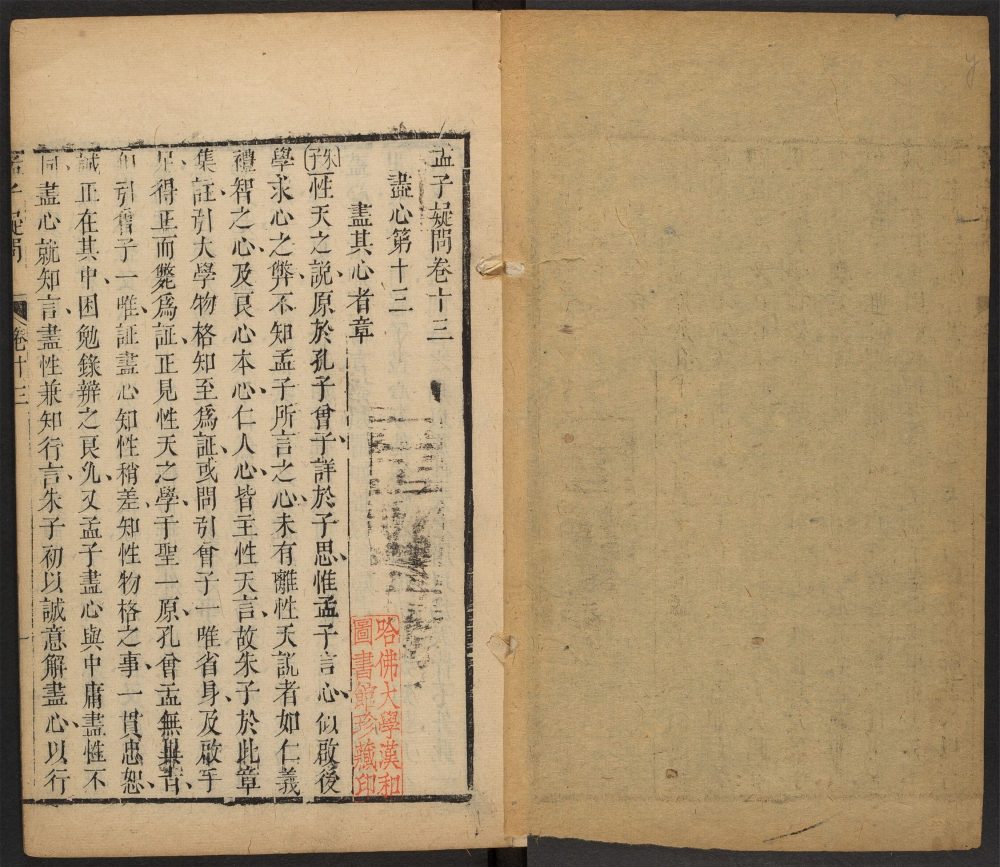 孟子疑問卷十三
盡心第十三
盡其心者章
朱子性天之說原於孔子曾子詳於子思惟孟子言心似啟後
學求心之弊不知孟子所言之心未有離性天說者如仁義
禮智之心及良心本心仁人心皆主性天言故朱子於此章
集註引大學物格知至為証或問引曾子一唯省身及啟手
足得正而斃為証正見性天之學于聖一原孔曾孟無異旨
引曾子一唯証盡心知性稍差知性物格之事一貫忠恕
誠正在其中困勉錄辨之良允又孟子盡心與中庸盡性不
同盡心就知言盡性兼知行言朱子初以誠意解盡心以行
孟子疑問
卷十三
一
哈佛大學漢和
圖書館珍藏印